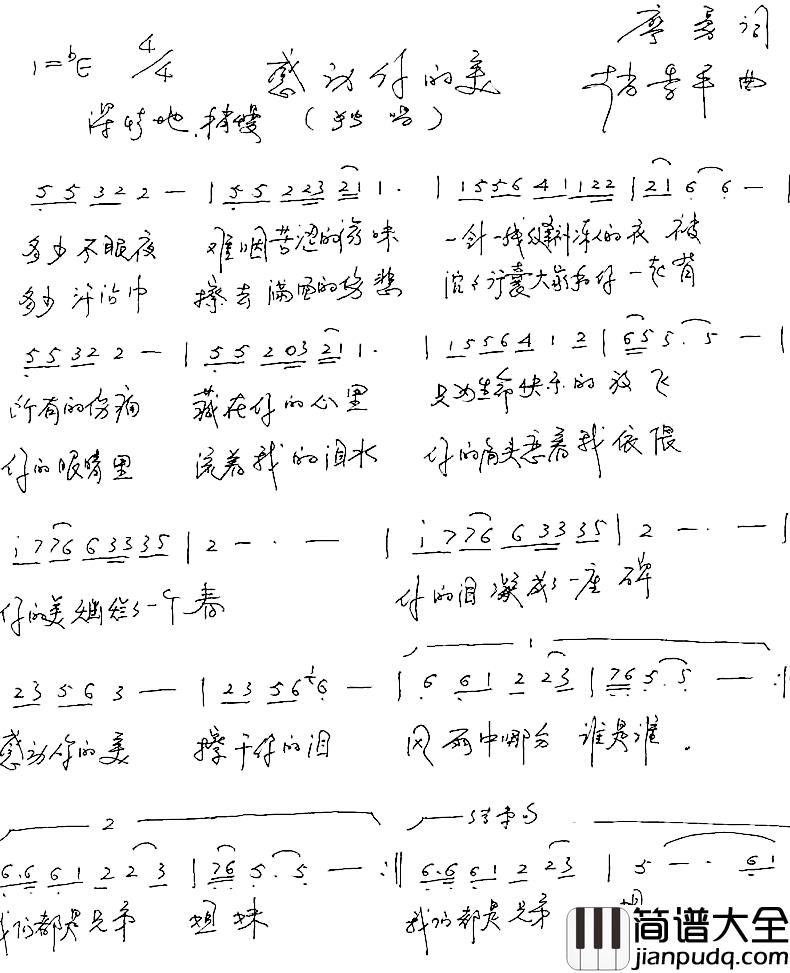 1=bE 4/4 感动你的美 廖勇 词
深情地.稍慢 (独唱) 青平 曲
5 5 3 2 2 — | 5 5 2 2 3 2 1 1 . | 1 5 5 6 4 1 1 2 2 | 2 1 6 6 — |
多少不眠夜 难咽苦涩的滋味 一针一线缝制深的衣 被
多少汗沾巾 擦去满面的伤悲 沉沉行囊大家和你一起背
5 5 3 2 2 — | 5 5 2 0 3 2 1 1 . | 1 5 5 6 4 1 2 | 6 5 5 . 5 — |
所有的伤痛 藏在你的心里 只为生命快乐的放飞
你的眼睛里 流着我的泪水 你的肩头恋着我依偎
i 7 7 6 6 3 3 3 5 | 2 — . — | i 7 7 6 6 3 3 3 5 | 2 — . — |
你的美灿烂了一个春 你的泪凝成了一座碑
2 3 5 6 3 — | 2 3 5 6 6 — | 6 6 1 2 2 3 | 7 6 5 . 5 — :||
感动你的美 擦干你的泪 风雨中哪分 谁是谁 。
2 结束句
6 . 6 6 1 2 2 3 | 7 6 5 . 5 — :|| 6 . 6 6 1 2 2 3 | 5 — . 6 1
我们都是兄弟 姐妹 我们都是兄弟 姐
简谱大全
jianpudq.com